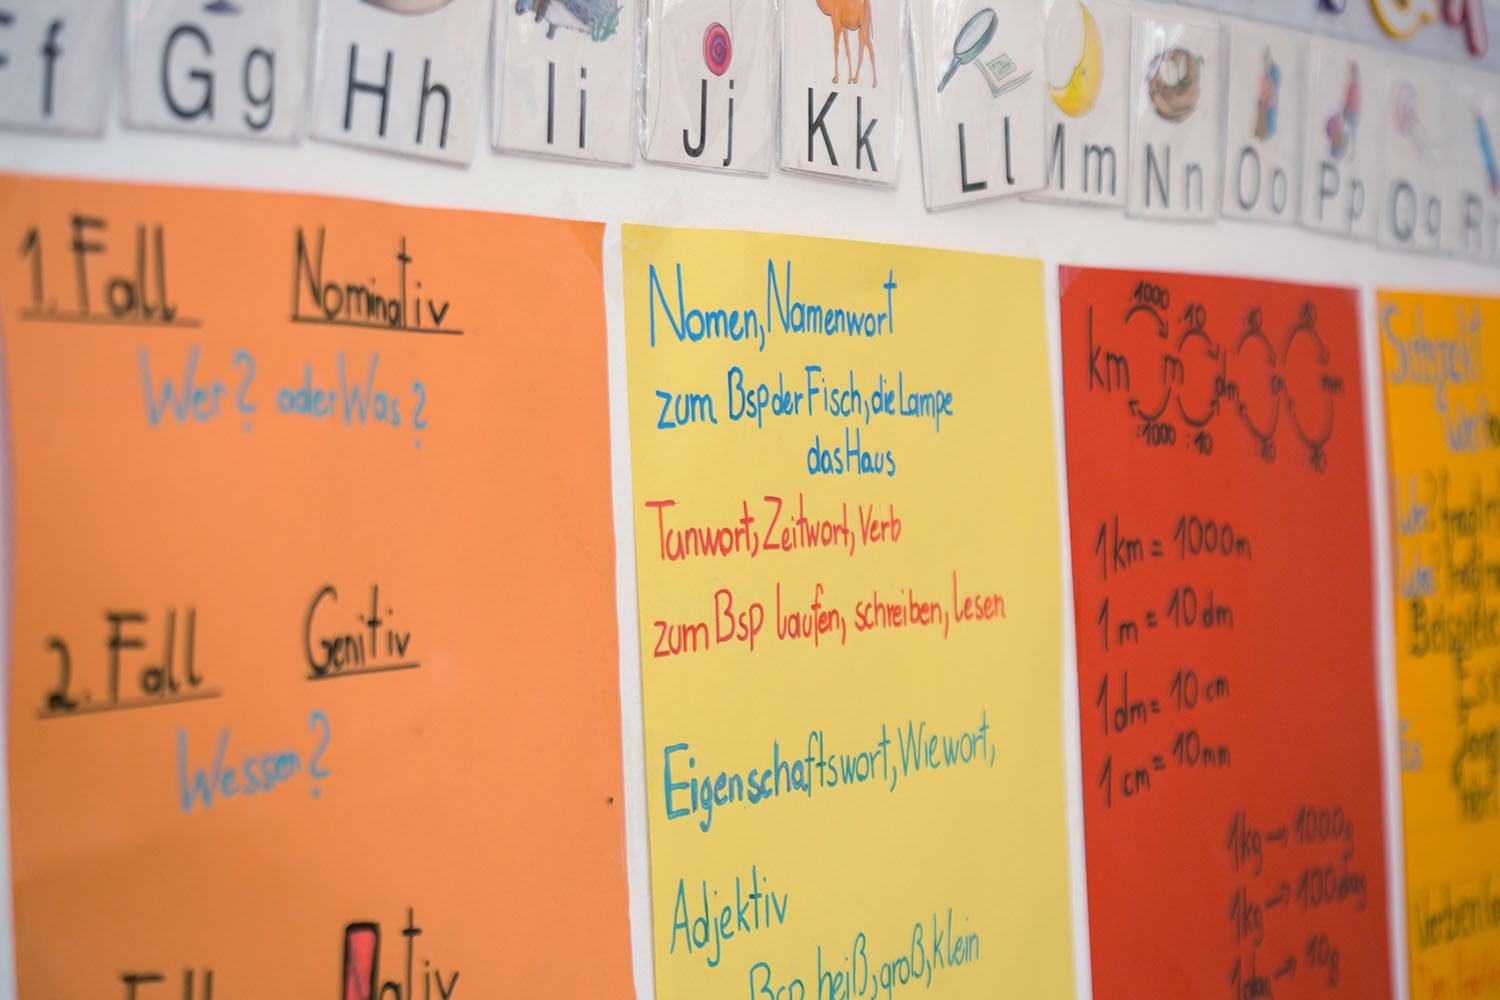 f
Gg
Hh
Ii
Jj
Kk
Ll
Mm
Nn
Oo
Pp
Qq
R
1. Fall Nominativ
Wer? oder Was?
2. Fall Genitiv
Wessen?
Fall ativ
Nomen, Namenwort
zum Bsp der Fisch, die Lampe
das Haus
Tunwort, Zeitwort, Verb
zum Bsp laufen, schreiben, lesen
Eigenschaftswort, Wiewort,
Adjektiv
Bsp heiß, groß, klein
:1000 :10 :10 :10
km m dm cm mm
:1000 :10 :10 :10
1km = 1000m
1m = 10dm
1dm = 10cm
1cm = 10mm
1kg → 1000g
1kg → 100dag
1dag → 10g
Wer?
Was
Beispiele